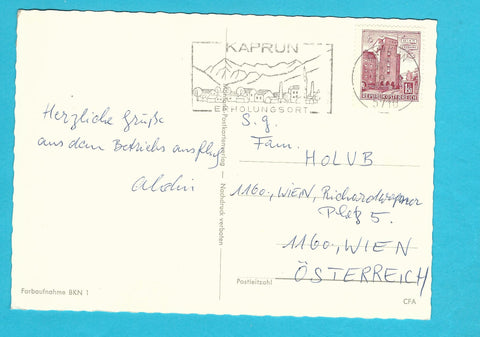 KAPRUN
ERHOLUNGSORT
REPUBLIK ÖSTERREICH
Herzliche Grüße
aus dem Betriebsausflug
S.g.
Fam.
HOLUB
1160, WIEN, Richard Wagner
Platz 5.
1160, WIEN
ÖSTERREICH
Postleitzahl
Nachdruck verboten
Farbaufnahme BKN 1
CFA